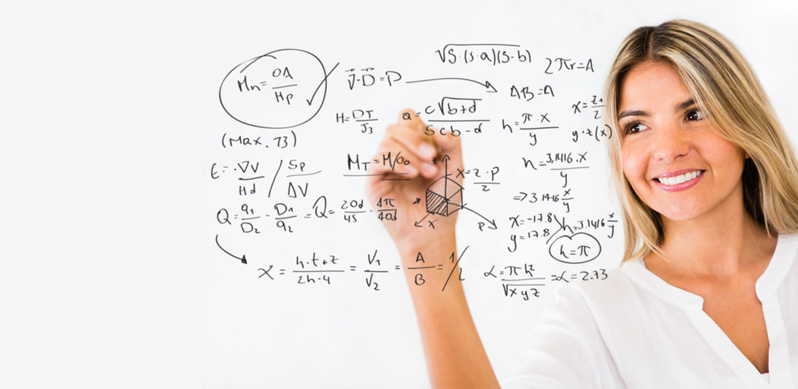 Mn = OA / Hp
∇·D = P
√S·(s·a)(s-b)
2πr=A
AB=A
H= DT / J3
a= c√b+d / 5cb-d
h= π·X / y
x= z / 2
y·z(x)
(Max. 73)
E= -∇V / Hd / Sp / ΔV
MT = M/00
X= 2·P / 2
n= 3,1416·X / y
=> 3,1416 x / y
Q= q1 / D2 - D1 / q2 = Q= 20d / 4S · 4π / 4ad
x
P
x=-17.8
y=17.8
h=3,1416 x / y
h=π
x = h·t+z / 2h-4 = V1 / V2 = A / B = 1/2
α= πk / √xyz = α=2.73